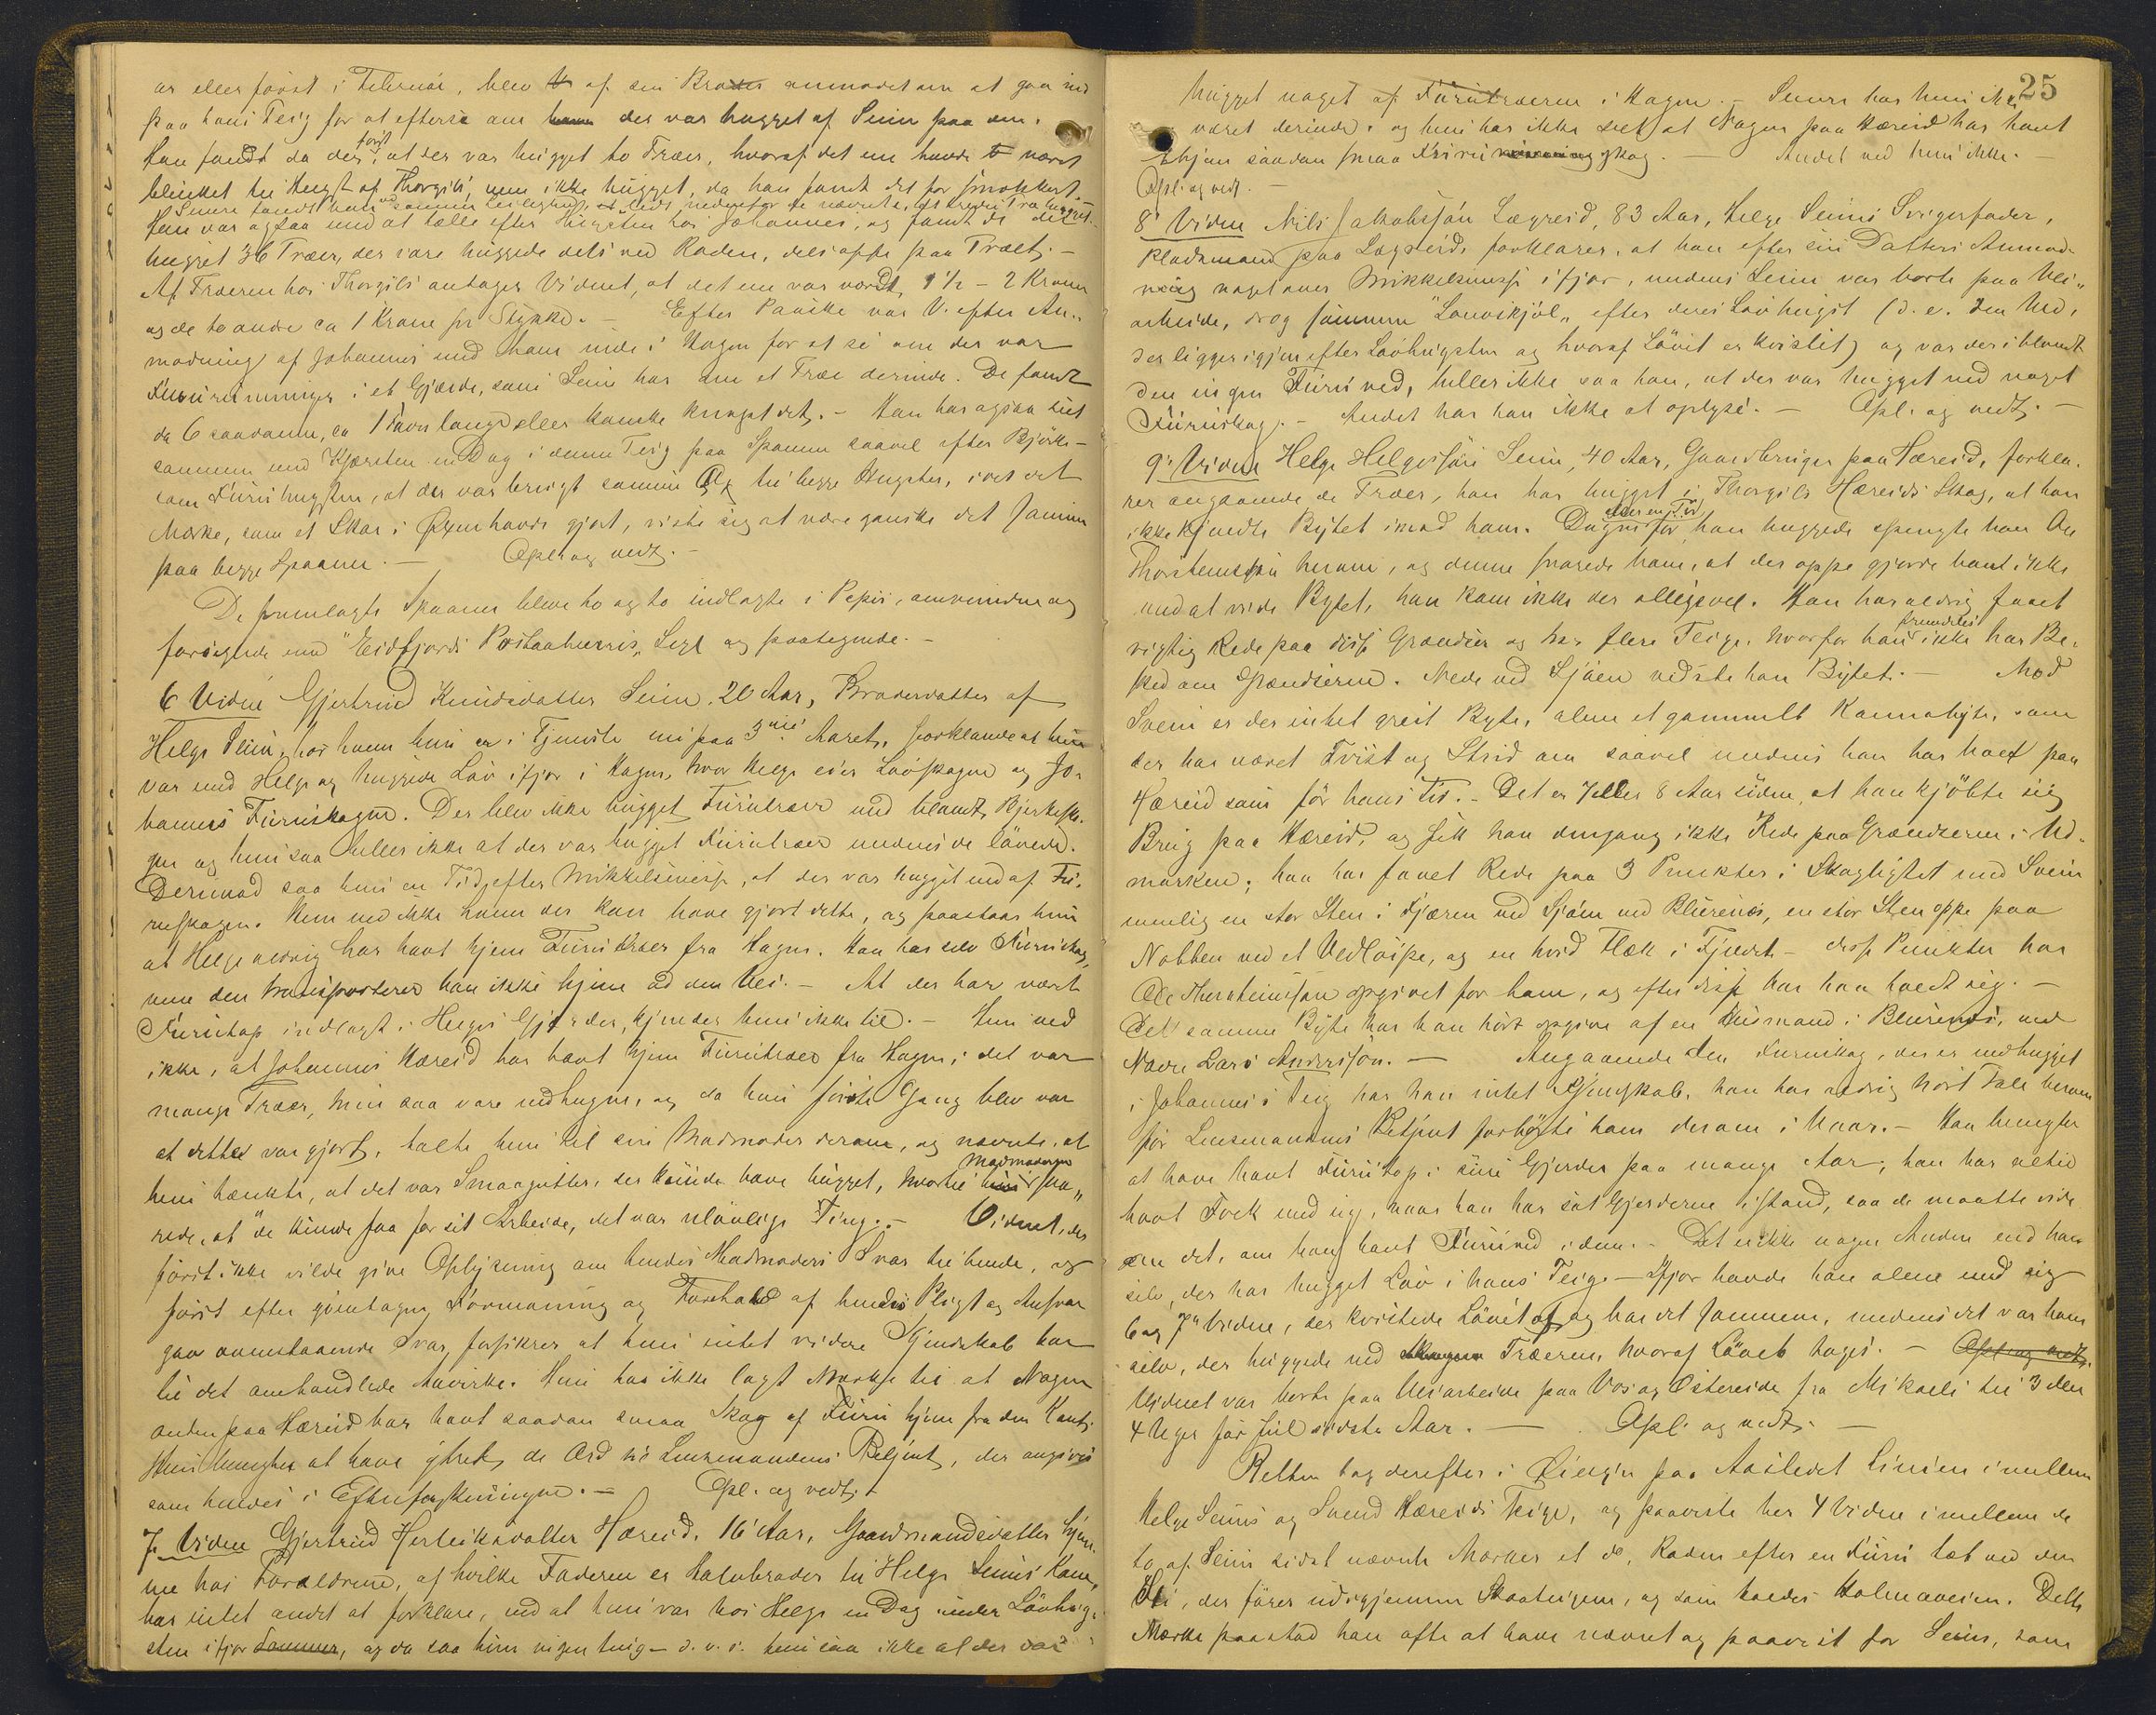 ar eller først i Februar, blev V af sin Broder anmodet om at gaa ind
paa hans Teig for at efterse om der var hugget af Seim paa den.
Han fandt da der først, at der var hugget to Træer, hvoraf det ene havde været
blinket til Hugst af Thorgils, men ikke hugget, da han fandt det for smaakvist.
Senere fandt han ved samme Leilighed, et Sted nedenfor de nævnte, det tredie Træ hugget.
Han var ogsaa med at tælle efter Hugsten hos Johannes, og fandt de der
hugget 36 Træer, der vare huggede dels ved Roden, dels oppe paa Træet. –
Af Træerne hos Thorgils antager Vidnet, at det ene var værdt 1 1/2 – 2 Kroner
og de to andre ca 1 Krone pr Stykke. – Efter Paaske var V. efter An-
modning af Johannes med ham inde i Hagen for at se om der var
Furu i et Gjærde, som Seim har om et Træ derinde. De fandt
da 6 saadanne, ca 1 Favn lange eller kanske knapt det. – Han har ogsaa set
sammen med Kjærsten en Dag i denne Teig paa Spaanen saavel efter Bjørke-
som Furuhugsten, at der var brugt samme Øx til begge Hugster, idet det
Mærke, som et Skar i Øxen havde gjort, viste sig at være ganske det samme
paa begge Spaaner. – Opl. og vedt. –
De fremlagte Spaaner bleve to og to indlagte i Papir, omvundne og
forseglede med "Eidfjords Postaabneris" Segl og paategnede. –
6 Vidne Gjertrud Knudsdatter Seim, 20 Aar, Broderdatter af
Helge Seim, hos hvem hun er i Tjeneste nu paa 3die Aaret, forklarede at hun
var med Helge og huggede Løv ifjor i Hagen, hvor Helge eier Løvskogen og Jo-
hannes Furuskogen. Der blev ikke hugget Furutræer ned blandt Bjerkesko-
gen og hun saa heller ikke at der var hugget Furutræer medens de løvede.
Derimod saa hun en Tid efter Mikkelsmesse, at der var hugget ned af Fu-
ruskogen. Hun ved ikke hvem der kan have gjort dette, og paastaar hun
at Helge aldrig har havt hjem Furutræer fra Hagen. Han har selv Furuskog,
men den transporterer han ikke hjem ad den Vei. – At der har været
Furutop indlagt i Helges Gjærder, kjender hun ikke til. – Hun ved
ikke, at Johannes Hæreid har havt hjem Furutræer fra Hagen; det var
mange Træer, hun saa vare nedhugne, og da hun første Gang blev var
at dette var gjort, talte hun til sin Madmoder derom, og nævnte, at
hun tænkte, at det var Smaagutter, der kunde have hugget, hvortil Madmoderen sva-
rede, at "de kunde faa for sit Arbeide, det var ulovlige Ting". – Vidnet, der
først ikke vilde give Oplysning om hendes Madmoders Svar til hende, og
først efter gjentagen Formaning og Forehold af hendes Pligt og Ansvar
gav ovenstaaende Svar, forsikrer at hun intet videre Kjendskab har
til det omhandlede Aavirke. Hun har ikke lagt Mærke til at Nogen
anden paa Hæreid har havt saadan smaa Skog af Furu hjem fra den Kant.
Hun benegter at have ytret, de Ord til Lensmandens Betjent, der angives
som hendes i Efterforskningen. – Opl. og vedt. –
7 Vidne Gjertrud Herleiksdatter Hæreid, 16 Aar, Gaardmandsdatter hjem-
me hos Forældrene, af hvilke Faderen er Halvbroder til Helge Seims Kone,
har intet andet at forklare, end at hun var hos Helge en Dag under Løvhug-
sten ifjor Sommer, og da saa hun ingenting – d. v. s. hun saa ikke at der var
25
hugget noget af Furutræerne i Hagen. – Senere har hun ikke
været derinde, og hun har ikke set at Nogen paa Hæreid har havt
hjem saadan smaa Furuskog. – Andet ved hun ikke. –
Opl. og vedt. –
8 Vidne Nils Jakobssøn Lægreid, 83 Aar, Helge Seims Svigerfader,
Pladsmand paa Lægreid, forklarer, at han efter sin Datters Anmod-
ning noget over Mikkelsmesse ifjor, medens Seim var borte paa Vei-
arbeide, drog sammen "Lauvkjøl" efter deres Løvhugst (d. e. den Ved,
der ligger igjen efter Løvhugsten og hvoraf Løvet er kvistet) og var der iblandt
den ingen Furuved, heller ikke saa han, at der var hugget ned noget
Furuskog. – Andet har han ikke at oplyse. – Opl. og vedt. –
9. Vidne Helge Helgessøn Seim, 40 Aar, Gaardbruger paa Hæreid, forkla-
rer angaaende de Træer, han har hugget i Thorgils Hæreids Skog, at han
ikke kjendte Bytet imod ham. Dagen eller en Tid før han huggede spurgte han Ole
Thorsteinsøn herom, og denne svarede ham, at der oppe gjorde han ikke
ondt at vide Bytet, han kom ikke der alligevel. Han har aldrig faaet
rigtig Rede paa disse Grændser og har flere Teige, hvorfor han fremdeles ikke har Be-
sked om Grændserne. Nede ved Sjøen vidste han Bytet. – Mod
Svein er der intet greit Byte, alene et gammelt Kannabyte, som
der har været Tvist og Strid om saavel medens han har havt paa
Hæreid som før hans Tid. – Det er 7 eller 8 Aar siden, at han kjøbte sig
Brug paa Hæreid, og fik han dengang ikke Rede paa Grændserne i Ud-
marken; han har faaet Rede paa 3 Punkter i Skogligtet med Svein
nemlig en stor Sten i Fjæren ved Sjøen ved Blurenæs, en stor Sten oppe paa
Nobben ved et Vedløipe, og en hvid Flæk i Fjeldet – disse Punkter har
Ole Thorsteinsøn opgivet for ham, og efter disse har han holdt sig. –
Det samme Byte har han hørt opgive af en Husmand i Blurenæs, ved
Navn Lars Anderssøn. – Angaaende den Furuskog, der er nedhugget
i Johannes's Teig har han intet Kjendskab, han har aldrig hørt Tale herom
før Lensmandens Betjent forhørte ham derom i Vaar. – Han benegter
at have havt Furutop i sine Gjerder paa mange Aar; han har altid
havt Folk med sig, naar han har sat Gjerderne istand, saa de maatte vide
om det, om han havt Furuved i dem. – Det er ikke nogen Anden end ham
selv, der har hugget Løv i hans Teige – Ifjor havde han alene med sig
6 og 7de Vidne, der kvistede Løvet af og bar det sammen, medens det var ham
selv, der huggede ned Træerne, hvoraf Løvet toges. – Opl. og vedt.
Vidnet var borte paa Veiarbeide paa Vos og Østereide fra Mikaeli til 3 eller
4 Uger før Jul sidste Aar. – Opl. og vedt. –
Retten tog derefter i Øiesyn paa Aastedet Linien imellem
Helge Seims og Svend Hæreids Teige, og paaviste her 4 Vidne imellem de
to af Seim sidst nævnte Mærker et do, Roden efter en Furu tæt ved den
Vei, der fører udigjennem Skogteigene, og som kaldes Holmaveien. Dette
Mærke paastod han ofte at have nævnt og paavist for Seim, som